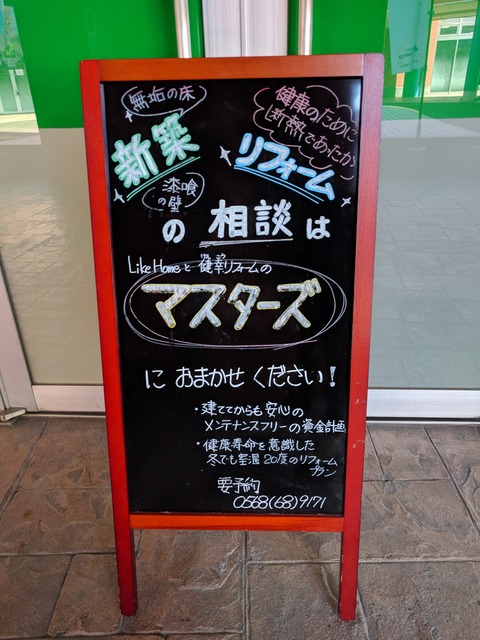 無垢の床
健康のために
断熱であったか
新築
リフォーム
漆喰
の壁
の 相談 は
Like Homeと 健幸リフォームの
マスターズ
に おまかせ ください!
・建ててからも安心の
メンテナンスフリーの資金計画
・健康寿命を意識した
冬でも室温20度のリフォーム
プラン
要予約
0568(68)9171